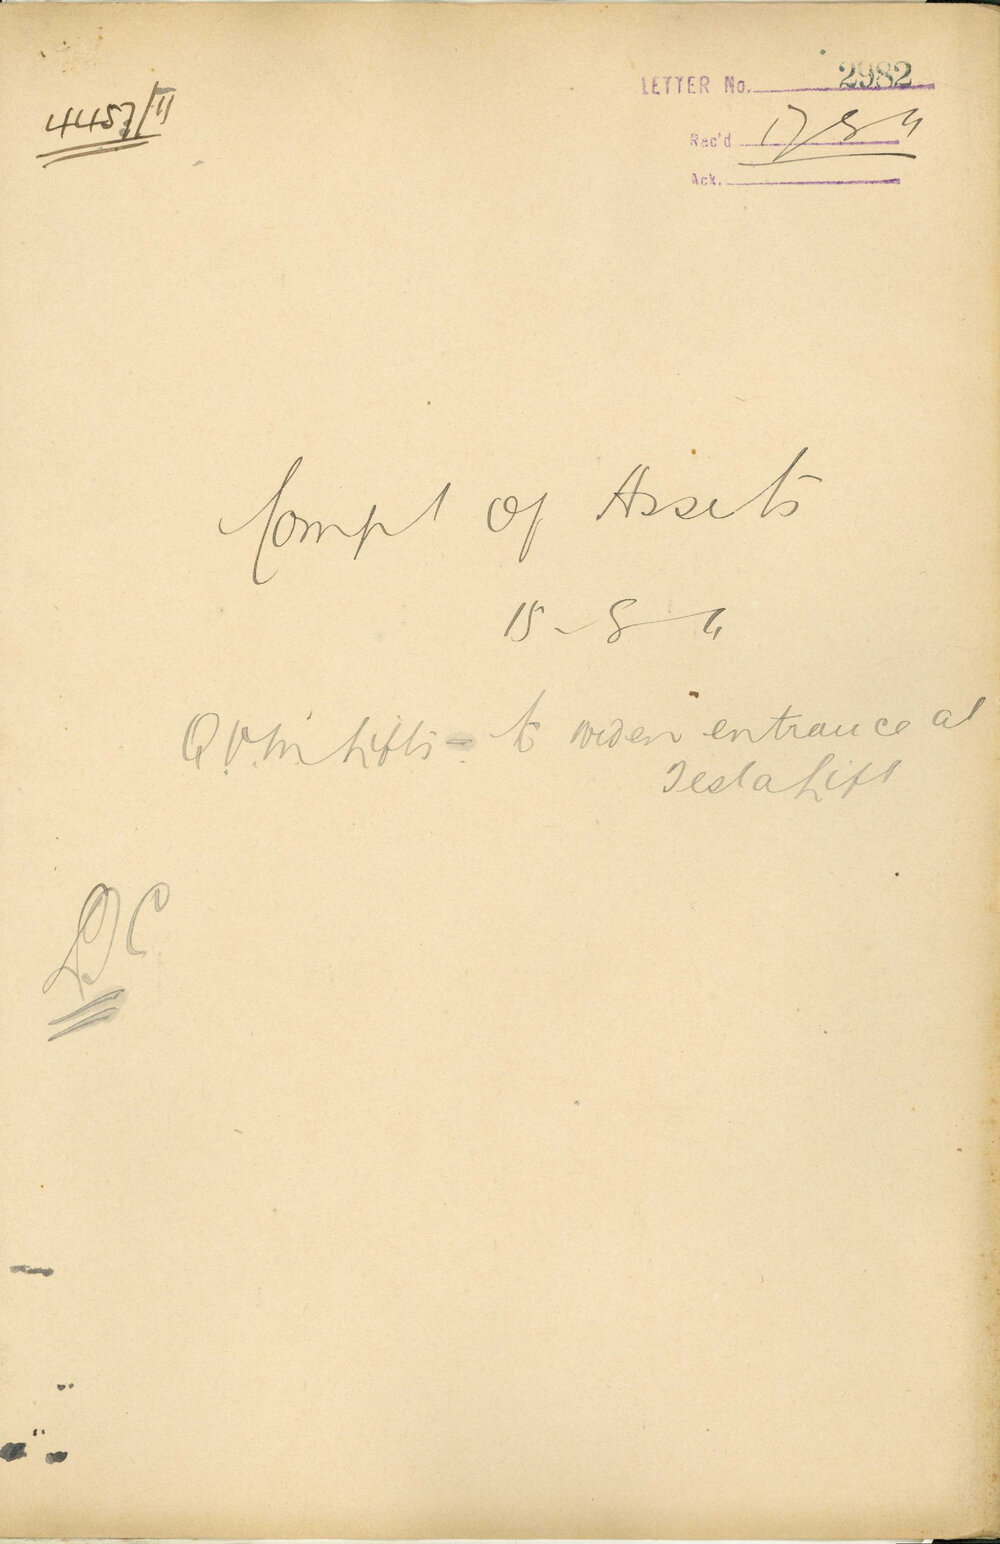 4457/11
LETTER No. 2982
Rec'd 17/8/11
Ack.
Compt of Assets
15-8-11
Q.V.M. Lifts - to widen entrance at
Tesla Lift